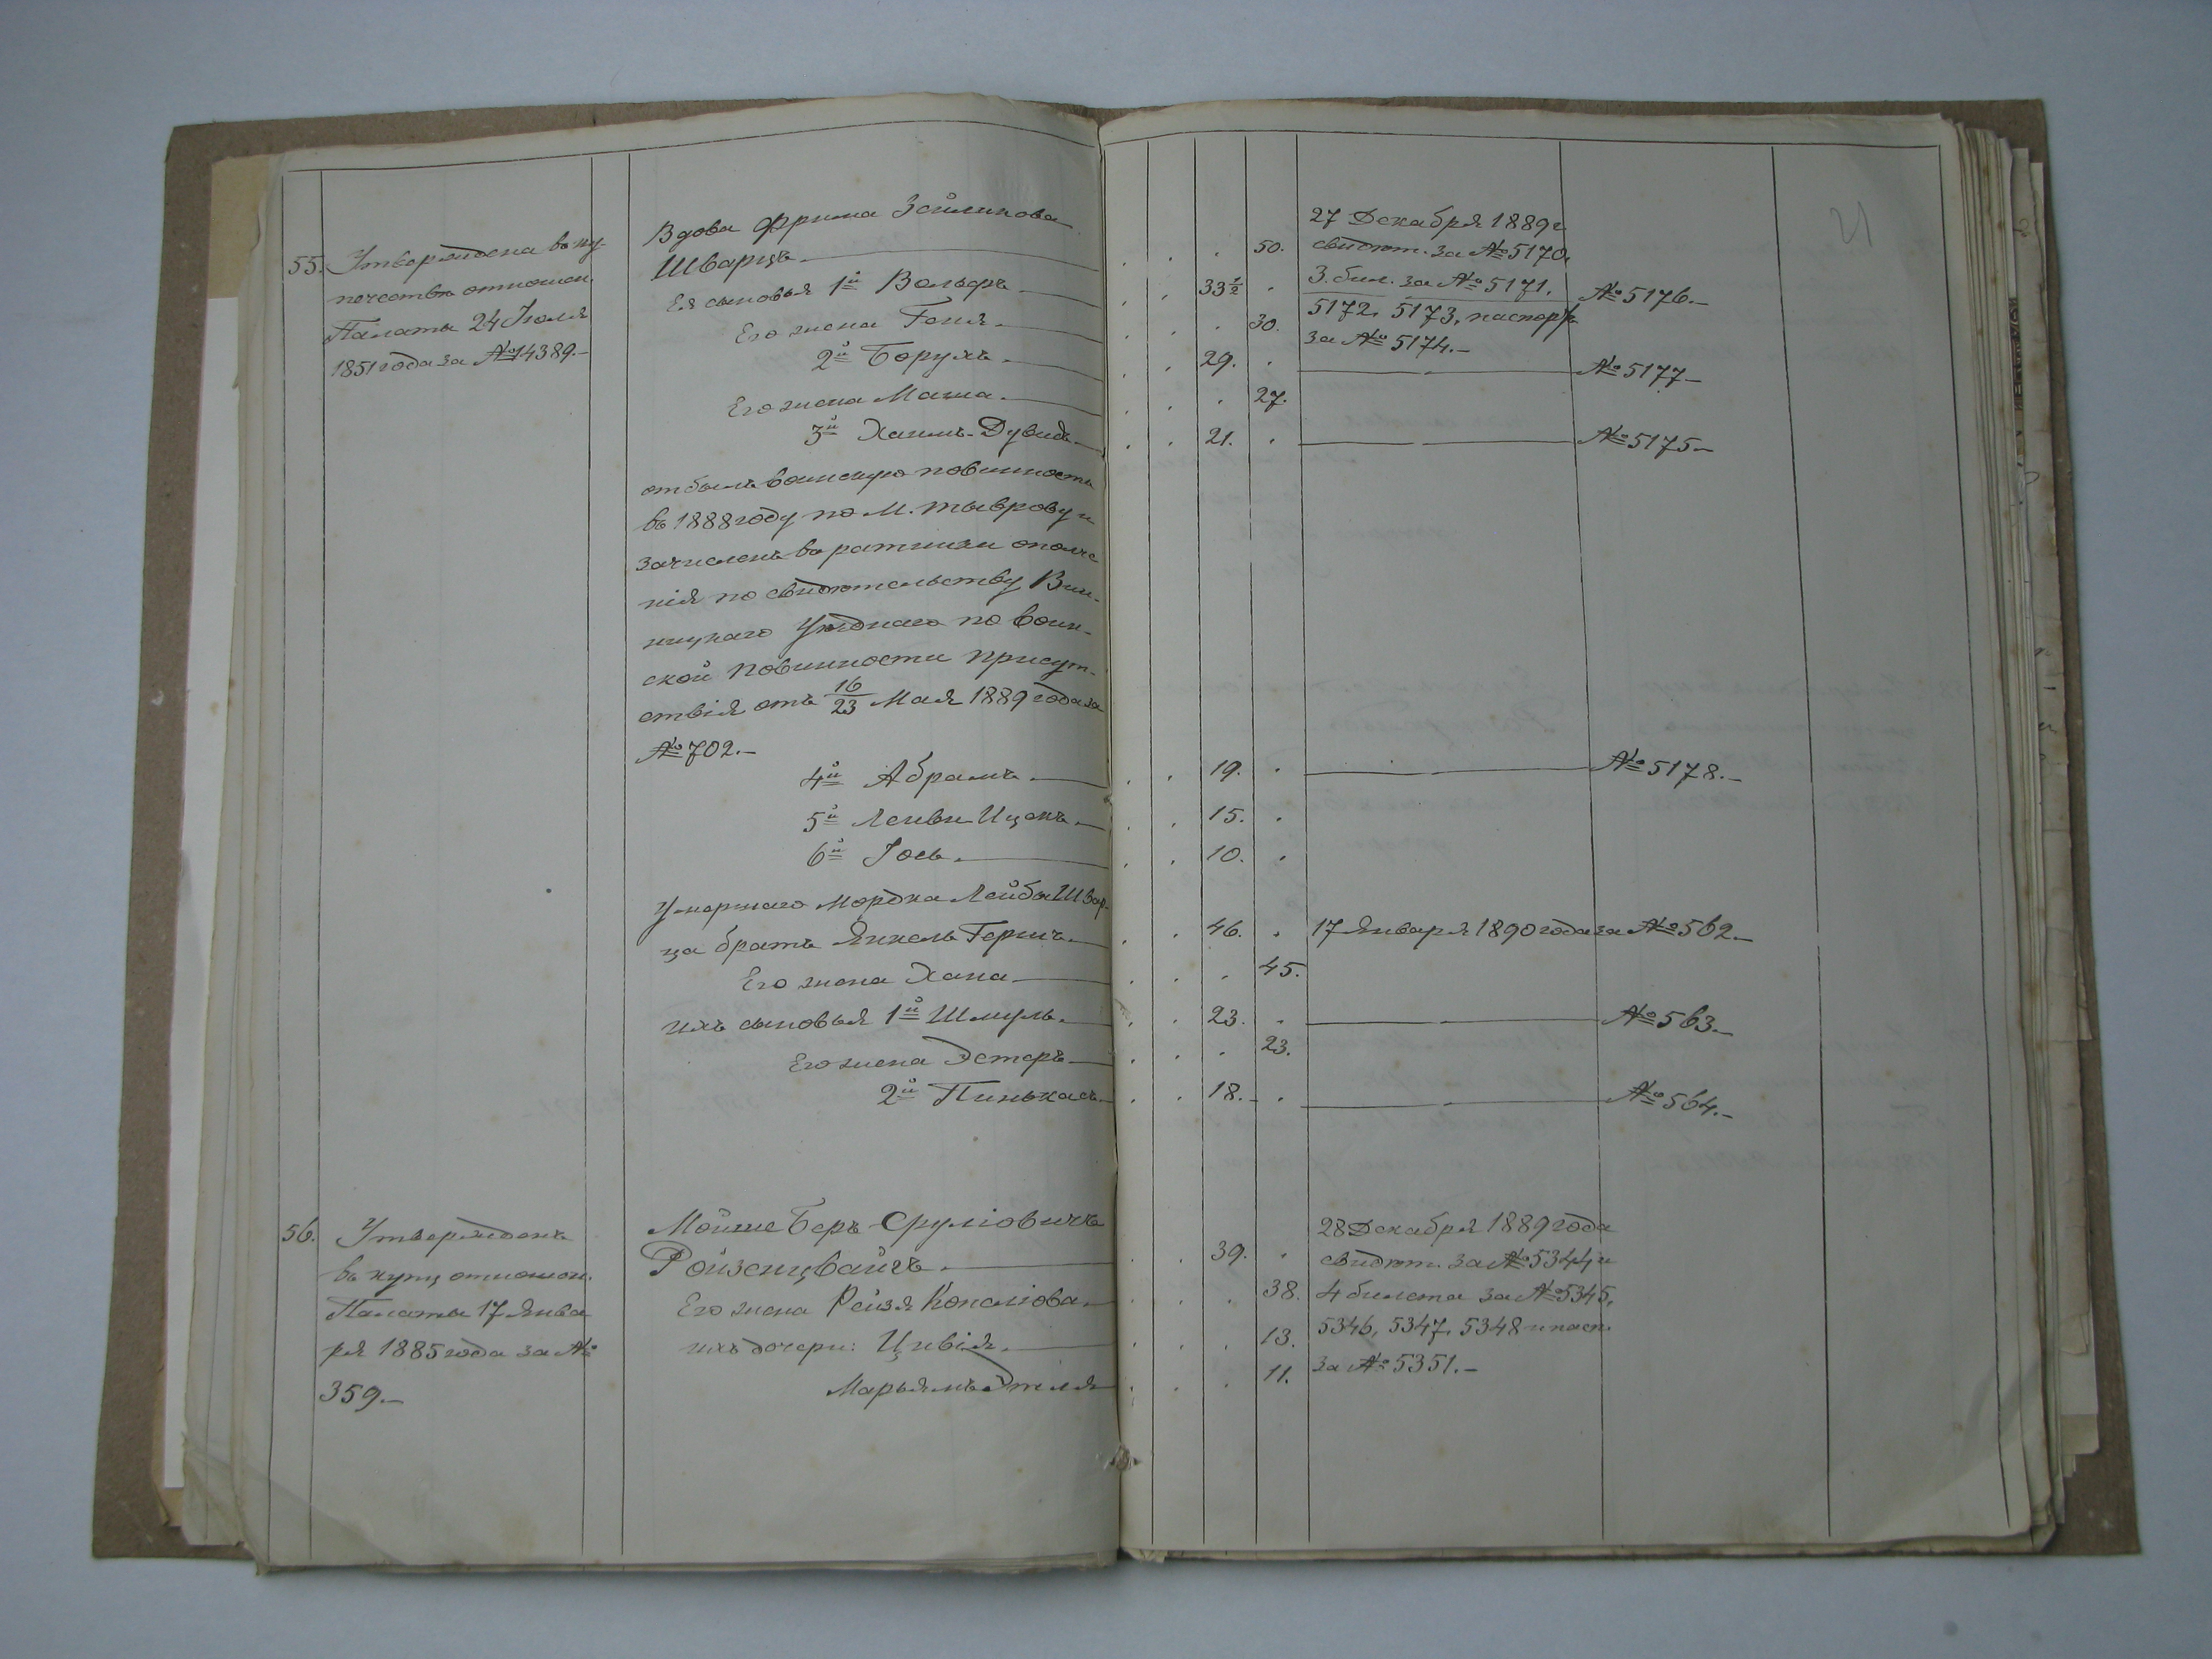 21
55. Утверждена въ ку-
печество отношен.
Палаты 24 Іюля
1851 года за № 14389.-
Вдова Фрима Зейликова
Шварцъ 50.
Ея сыновья 1й Вольфъ 33½
Его жена Геня. 30.
2й Борухъ 29.
Его жена Маша. 27.
3й Хаимъ-Дувидъ 21.
отбылъ воинскую повинность
въ 1888 году по м. Тыврову и
зачисленъ въ ратники ополче
нія по свидѣтельству Вин-
ницкаго Уѣзднаго по воин-
ской повинности присут-
ствія отъ 16/23 Мая 1889 года за
№ 702.-
4й Абрамъ 19.
5й Лейви Ицекъ 15.
6й Іось. 10.
Умершаго Мордка Лейбы Швар-
ца братъ Янкель Гершъ 46.
Его жена Хана 45.
ихъ сыновья 1й Шмуль. 23.
Его жена Эстеръ 23.
2й Пинькасъ 18.
27 Декабря 1889 г
свидѣт. за № 5170,
3. бил. за № 5171. № 5176.-
5172, 5173, паспорт
за № 5174.-
№ 5177-
№ 5175-
№ 5178.-
17 Января 1890 года за № 562.-
№ 563.-
№ 564.-
56. Утвержденъ
въ купц отношен.
Палаты 17 Янва
ря 1885 года за №
359.-
Мойше Беръ Сруліовичъ
Ройзенцвайгъ 39.
Его жена Рейзя Копеліова 38.
ихъ дочери: Цивія. 13.
Марьямъ Этля 11.
28 Декабря 1889 года
свидѣт. за № 5344 и
4 билета за № 5345,
5346, 5347, 5348 и пасп.
за № 5351.-